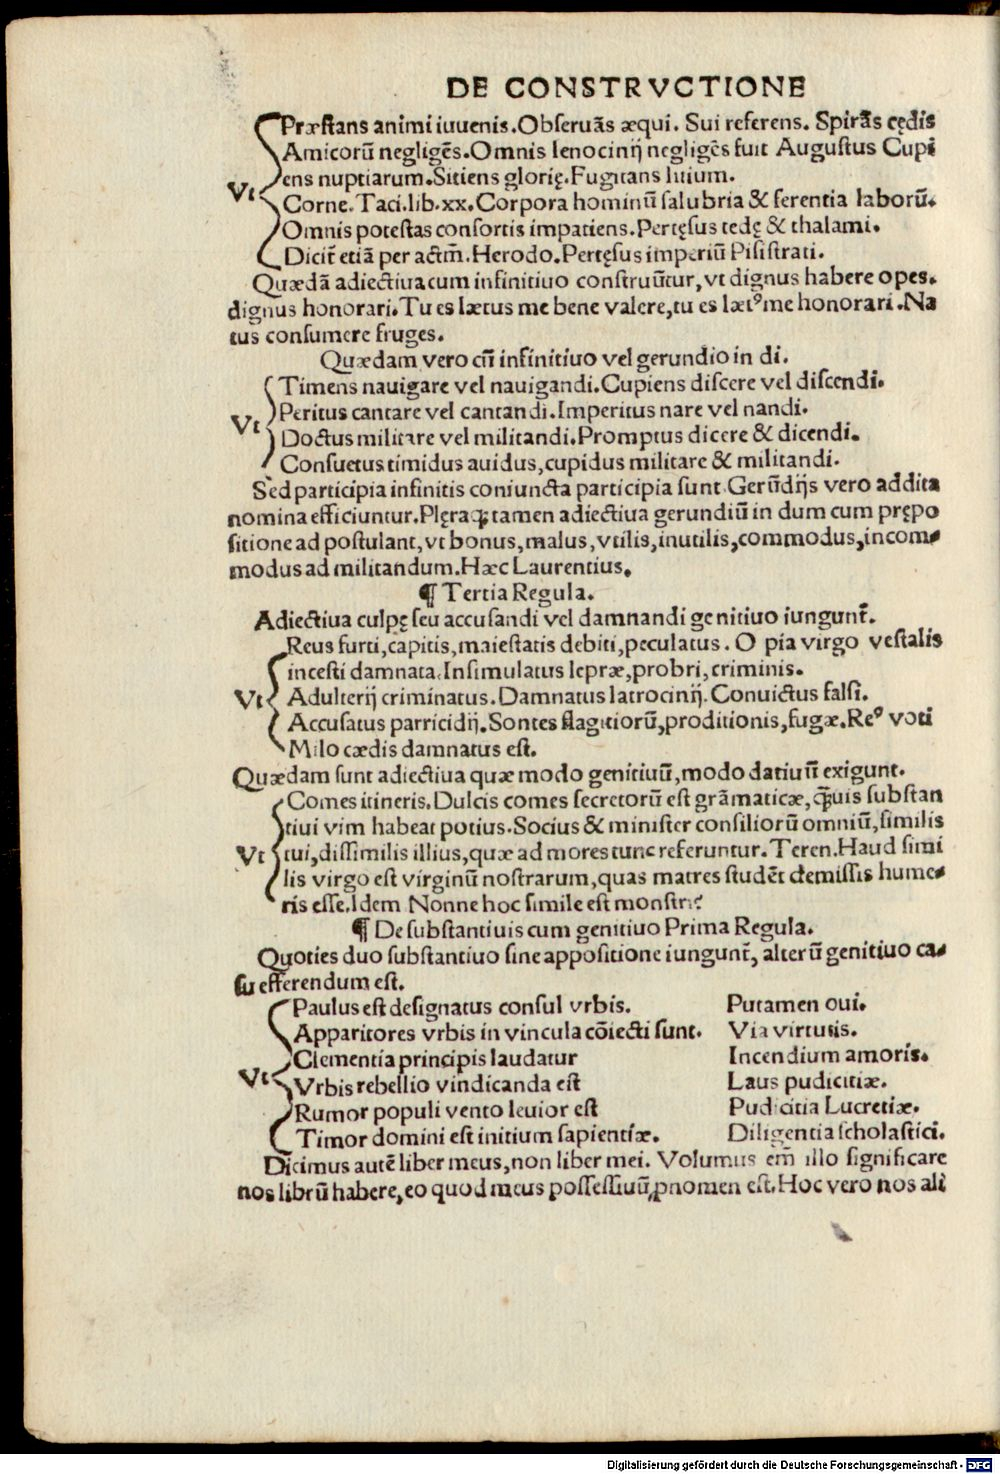 DE CONSTRVCTIONE
Præstans animi iuuenis. Obseruãs æqui. Sui referens. Spirãs cędis
Amicorũ negligẽs. Omnis lenocinij negligẽs fuit Augustus Cupi
ens nuptiarum. Sitiens glorię. Fugitans litium.
Vt Corne. Taci. lib. xx. Corpora hominũ salubria & ferentia laborũ.
Omnis potestas consortis impatiens. Pertęsus tedę & thalami.
Dicit̃ etiã per actm̃. Herodo. Pertęsus imperiũ Pisistrati.
Quædã adiectiua cum infinitiuo construũtur, vt dignus habere opes.
dignus honorari. Tu es lætus me bene valere, tu es lætꝰ me honorari. Na
tus consumere fruges.
Quædam vero cũ infinitiuo vel gerundio in di.
Timens nauigare vel nauigandi. Cupiens discere vel discendi.
Vt Peritus cantare vel cantandi. Imperitus nare vel nandi.
Doctus militare vel militandi. Promptus dicere & dicendi.
Consuetus timidus auidus, cupidus militare & militandi.
Sed participia infinitis coniuncta participia sunt. Gerũdijs vero addita
nomina efficiuntur. Plęraqꝫ tamen adiectiua gerundiũ in dum cum prępo
sitione ad postulant, vt bonus, malus, vtilis, inutilis, commodus, incom⸗
modus ad militandum. Hæc Laurentius.
¶ Tertia Regula.
Adiectiua culpę seu accusandi vel damnandi genitiuo iungunt̃.
Reus furti, capitis, maiestatis debiti, peculatus. O pia virgo vestalis
incesti damnata. Insimulatus lepræ, probri, criminis.
Vt Adulterij criminatus. Damnatus latrocinij. Conuictus falsi.
Accusatus parricidij. Sontes flagitiorũ, proditionis, fugæ. Reꝰ voti
Milo cædis damnatus est.
Quædam sunt adiectiua quæ modo genitiuũ, modo datiuũ exigunt.
Comes itineris. Dulcis comes secretorũ est grãmaticæ, q̃uis substan
tiui vim habeat potius. Socius & minister consiliorũ omniũ, similis
Vt tui, dissimilis illius, quæ ad mores tunc referuntur. Teren. Haud simi
lis virgo est virginũ nostrarum, quas matres studẽt demissis hume⸗
ris esse. Idem Nonne hoc simile est monstri?
¶ De substantiuis cum genitiuo Prima Regula.
Quoties duo substantiuo sine appositione iungunt̃, alterũ genitiuo ca⸗
su efferendum est.
Paulus est designatus consul vrbis. Putamen oui.
Apparitores vrbis in vincula cõiecti sunt. Via virtutis.
Clementia principis laudatur Incendium amoris.
Vt Vrbis rebellio vindicanda est Laus pudicitiæ.
Rumor populi vento leuior est Pudicitia Lucretiæ.
Timor domini est initium sapientiæ. Diligentia scholastici.
Dicimus autẽ liber meus, non liber mei. Volumus em̃ illo significare
nos librũ habere, eo quod meus possessiuũ ꝓnomen est. Hoc vero nos ali
Digitalisierung gefördert durch die Deutsche Forschungsgemeinschaft - DFG